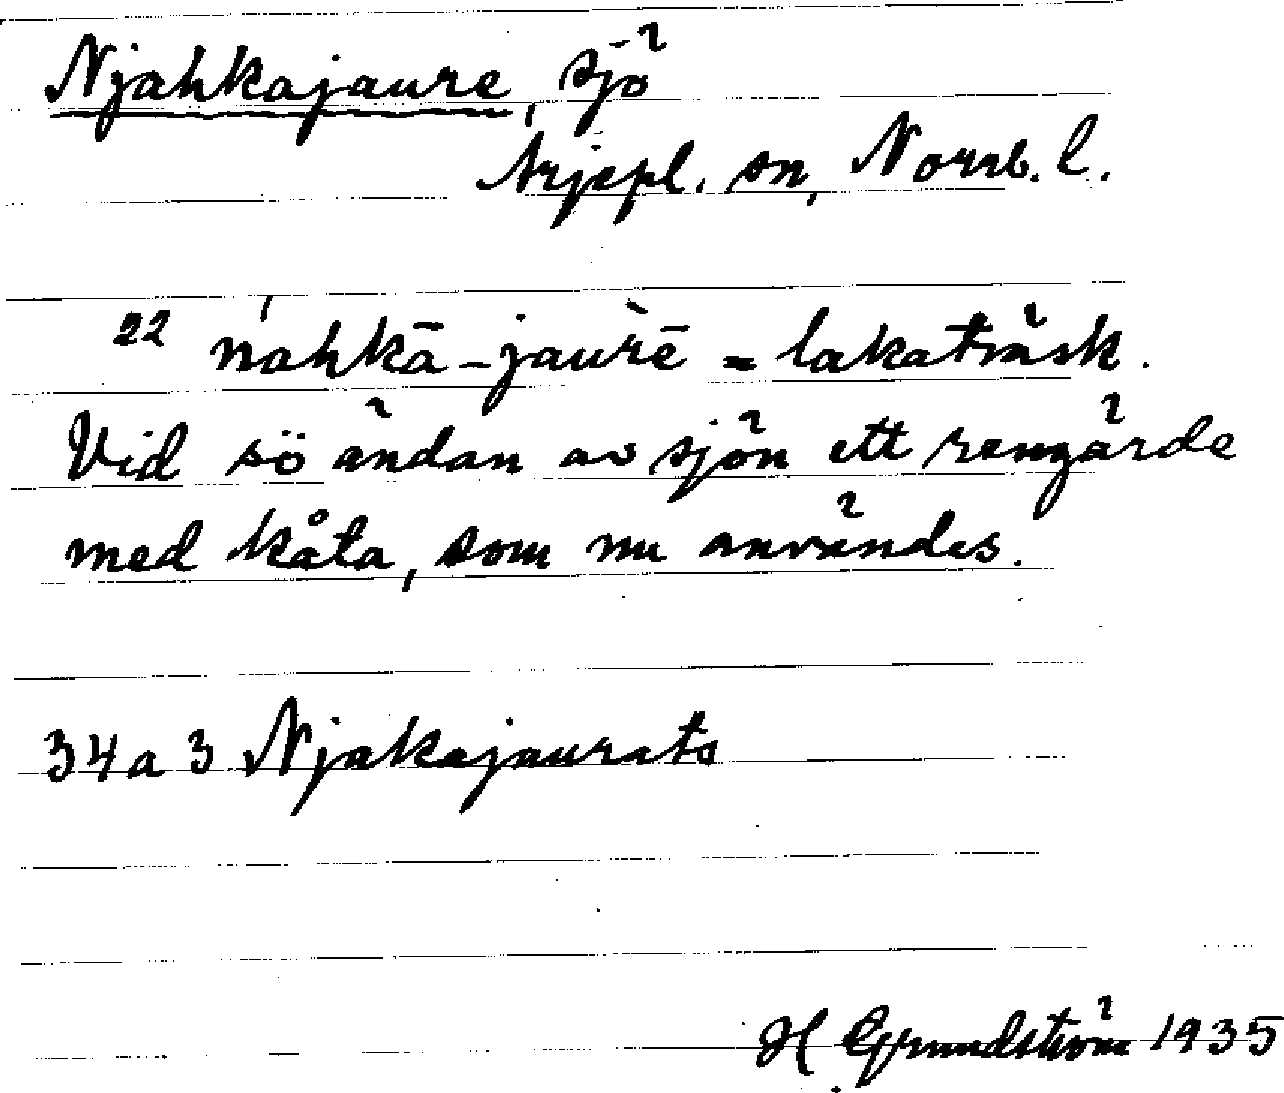 Njahkajaure, sjö
Arjepl. sn, Norrb. l.
22 ńahkā-jau̓rē = lakaträsk.
Vid sö ändan av sjön ett rengärde
med kåta, som nu användes.
34a3 Njakajaurats
H Grundström 1935